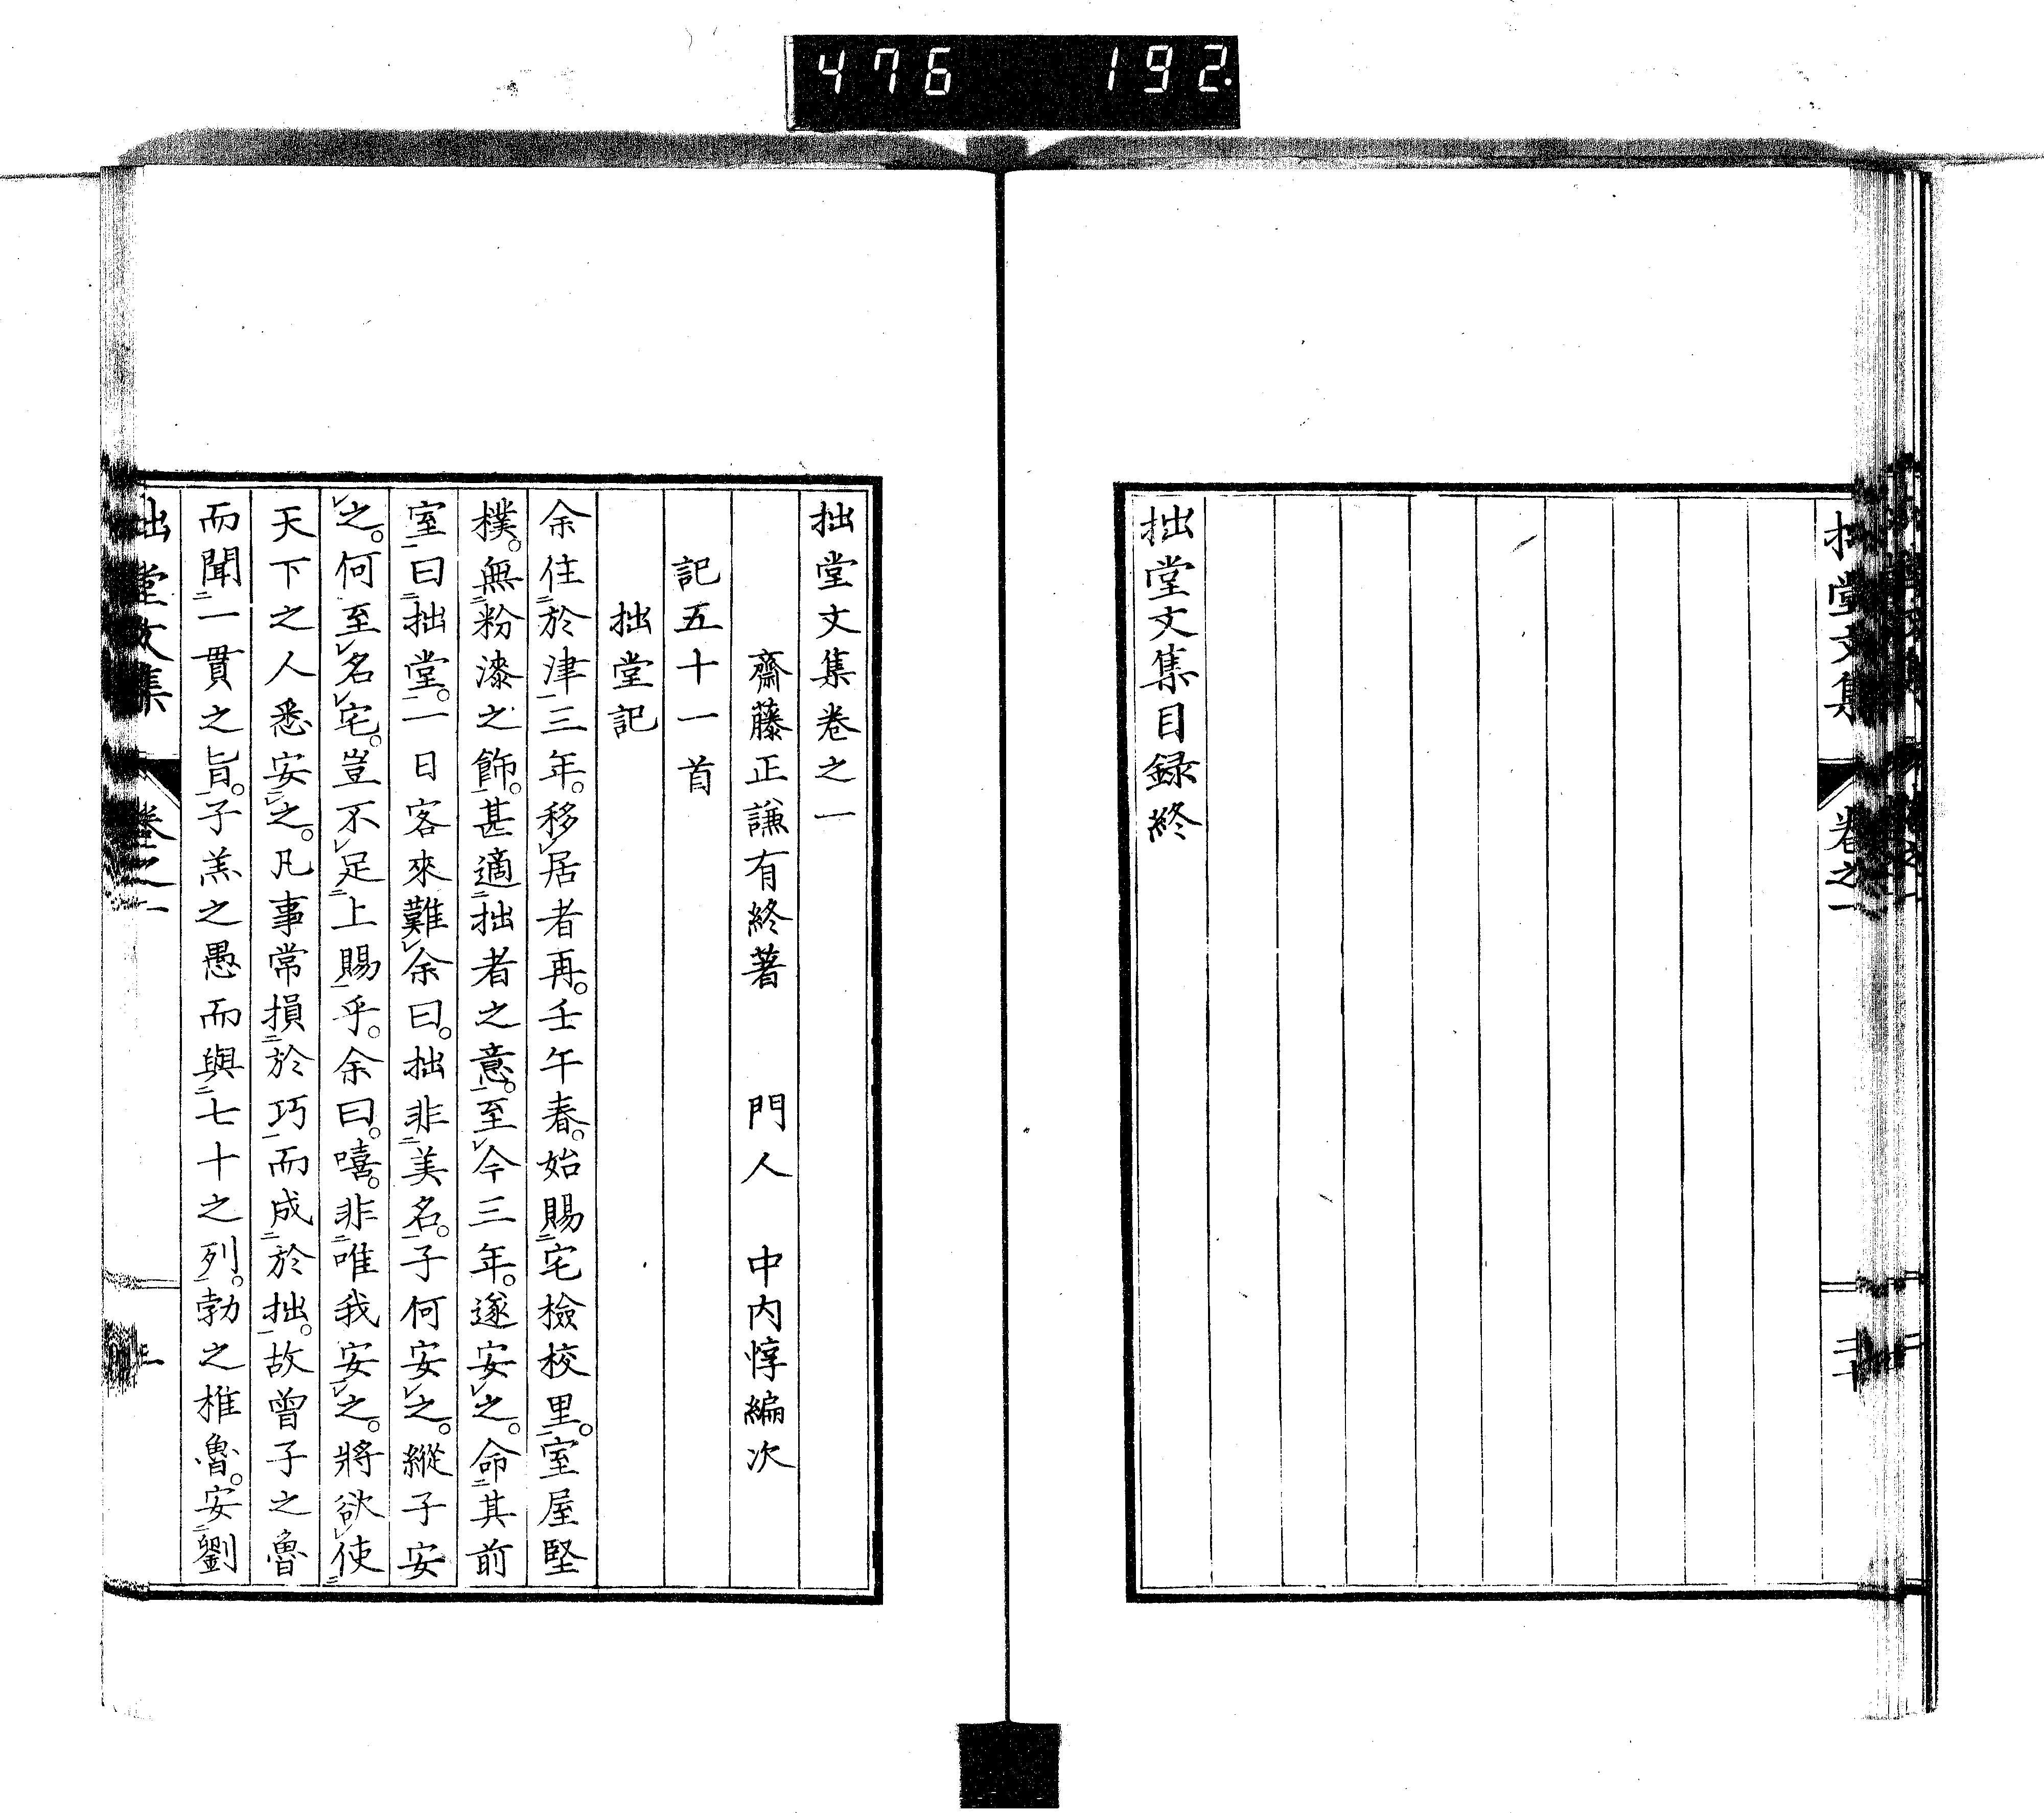 476 192.
拙堂文集 卷之一 二十
拙堂文集目録終
拙堂文集卷之一
齋藤正謙有終著 門人 中内惇編次
記五十一首
拙堂記
余住二於津一三年。移レ居者再。壬午春。始賜二宅檢校里一。室屋堅
樸。無二粉漆之飾一。甚適二拙者之意一。至レ今三年。遂安レ之。命二其前
室一曰二拙堂一。一日客來難レ余曰。拙非二美名一。子何安レ之。縱子安
レ之。何至レ名レ宅。豈不レ足二上賜一乎。余曰。嘻。非二唯我安一レ之。將欲レ使二
天下之人悉安一レ之。凡事常損二於巧一而成二於拙一。故曾子之魯
而聞二一貫之旨一。子羔之愚而與二七十之列一。勃之椎魯。安二劉
拙堂文集 卷之一 一